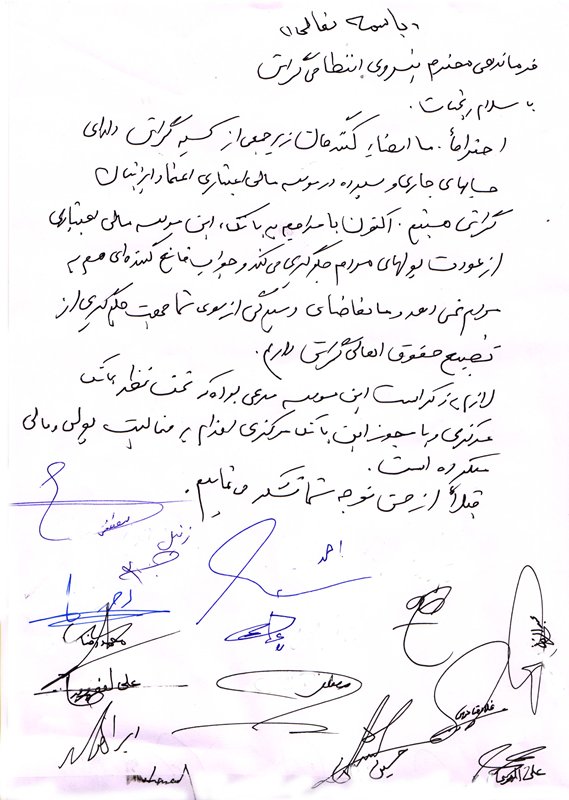 «باسمه تعالی»
فرماندهی محترم نیروی انتظامی گراش
با سلام و تحیات.
احتراماً، ما امضاء کنندگان زیر جمعی از کسبه گراش دارای
حسابهای جاری و سپرده در موسسه مالی اعتباری اعتماد ایرانیان
گراش هستیم. اکنون با مراجعه به بانک، این موسسه مالی اعتباری
از عودت پولهای مردم جلوگیری می کند و جواب قانع کننده ای هم به
مردم نمی دهد و ما تقاضای رسیدگی از سوی شما جهت جلوگیری از
تضییع حقوق اهالی گراش داریم.
لازم بذکر است این موسسه مدعی بوده که تحت نظر بانک
مرکزی و با مجوز این بانک مرکزی اقدام به فعالیت پولی و مالی
میکرده است.
قبلاً از حسن توجه شما تشکر می نماییم.
احمد
مصطفی
ابراهیم
حسین
علی اکبر